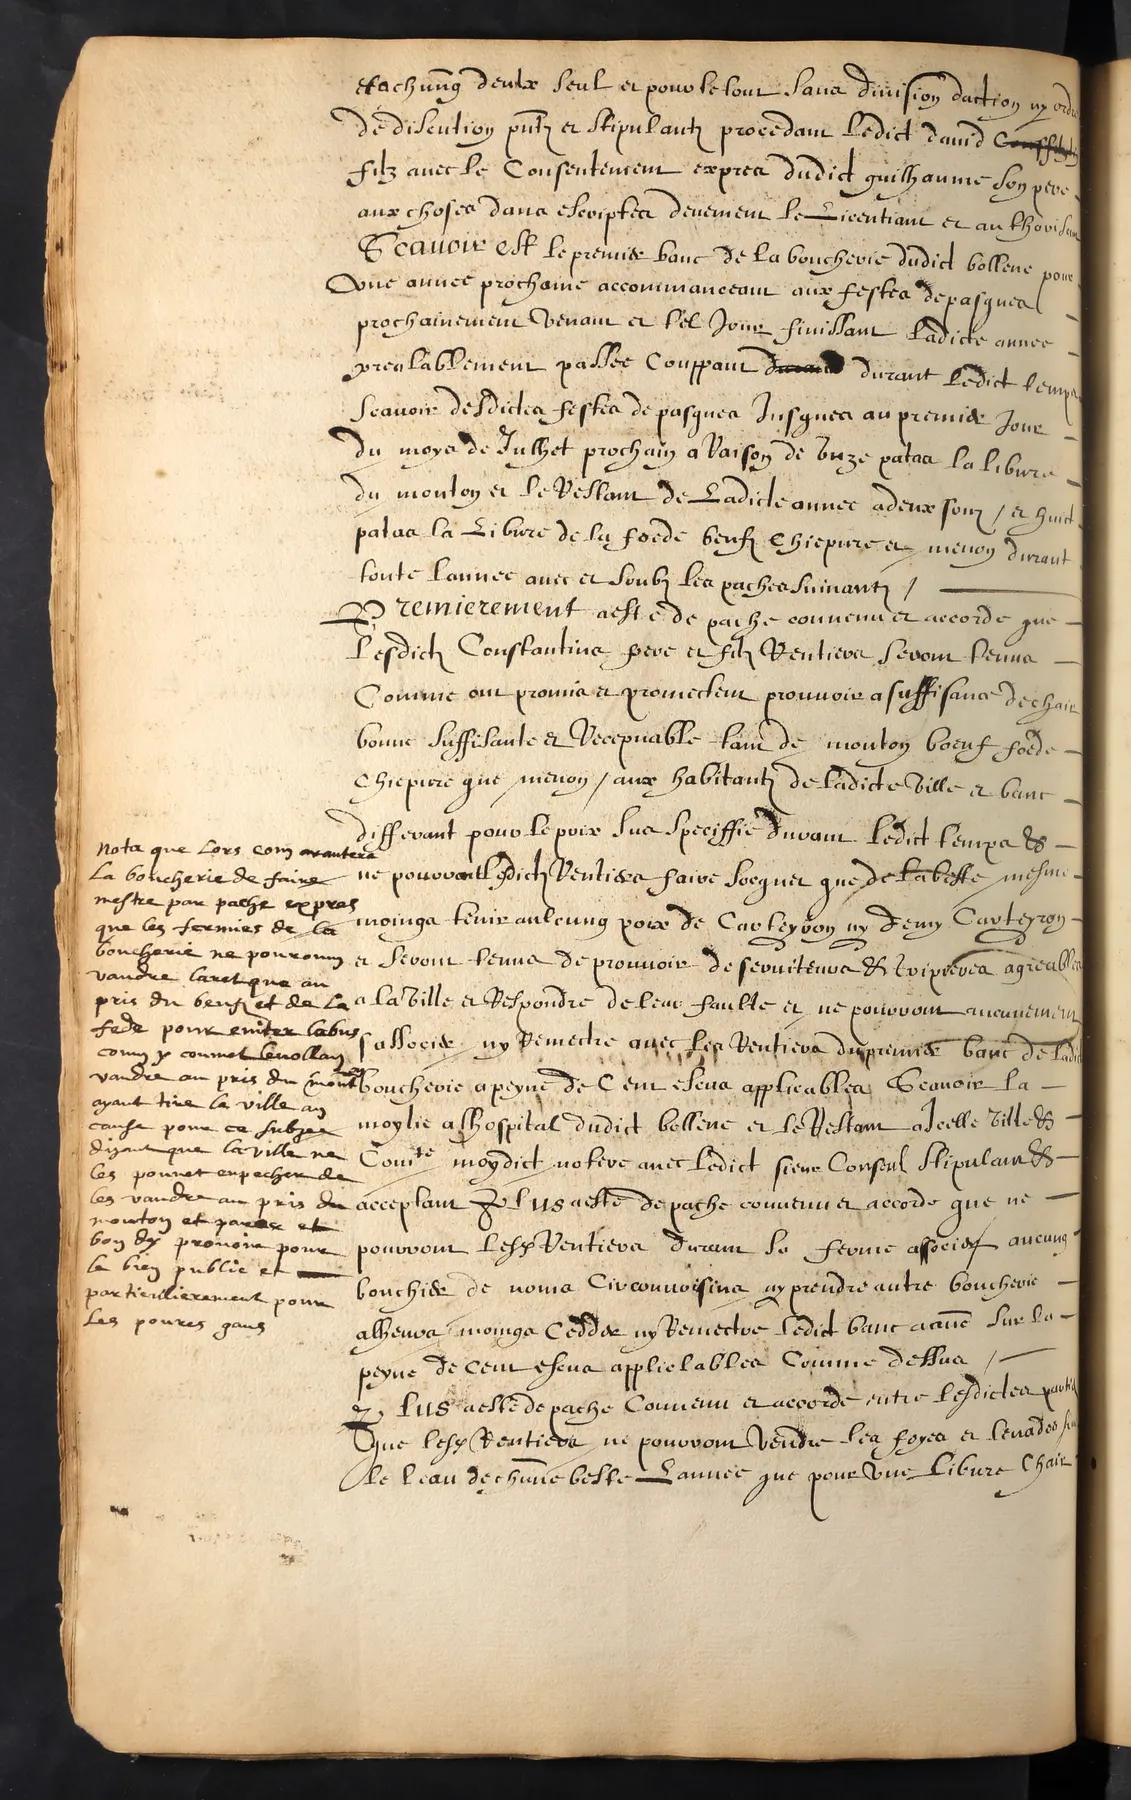 et achung deulx seul et pour le tout sans division daction ny ordre
de discution pntz et stipulantz procedant ledict david
filz avec le Consentement expres dudict guilhaume son pere
aux choses dans escriptes deuement le Licentiant et authorisant
Scauoir est le premier banc de la boucherie dudict bollene pour
Une annee prochaine accommanceant aux festes de pasques
prochainement Venant et tel Jour finissant ladicte annee
prealablement passee Couppant durant ledict temps
Scauoir desdictes festes de pasques Jusques au premier Jour
du moys de Julhet prochain a Raison de unze patas la libure
du mouton et le Restant de Ladicte annee a deux soulz / et huict
patas la Libure de la foede beufz Chiepure et menon durant
toute lannee avec et soubz les paches suiuantz /
Premierement a este de pache conuenu et accorde que
lesdictz Constantins pere et filz Rentiers seront tenus
Comme ont promis et promectent prouuoir a suffisance de chair
bonne suffisante et Receptuable tant de mouton boeuf foede
Chiepure que menon / aux habitantz de ladicte Ville et banc
differant pour le poix sus speciffie durant ledict temps &
ne pourront lesdictz Rentiers faire soegner que de la beste mesme
moings tenir aulcung poix de Carteyron ny demy Carteyron
et seront tenus de prouuoir de seruiteurs & tripieres agreables
a la Ville et Respondre de leur faulte et ne pourront aucunement
sassocier ny Remectre avec les Rentiers du premier banc de ladicte
boucherie a peyne de Cent escus applicables Scauoir la
moytie a lhospital dudict bollene et le Restant a Jcelle Ville &
Comte moydict notere avec ledict sieur Consul stipulant &
acceptant Plus a este de pache conuenu et accorde que ne
pourront lesdz Rentiers durant sa ferme associer aucung
bouchier de noms Circonuoisins ny prendre autre boucherie
alheurs moings Cedder ny Remectre ledict banc a aultre sur la
peyne de cent escus applicables Comme dessus /
Plus a este de pache Conuenu et accorde entre lesdictes parties
Que lesdz Rentiers ne pourront Vendre les foyes et leuades
de leau dechune beste Lannee que pour Vne Libure Chair
nota que Lors
La boucherie de faire
mestre par pache expres
que les fermies de la
boucherie ne pouront
vandre laret que au
pris du beufz et de la
fede pour euiter labus
vandre au pris du mouton
ayant tire la ville au
cause pour ce subiec
dizant que la ville ne
les pouuet enpecher de
les vandre au pris du
mouton et
bon dy prouoir pour
le bien public et
particullierement pour
les poures gans